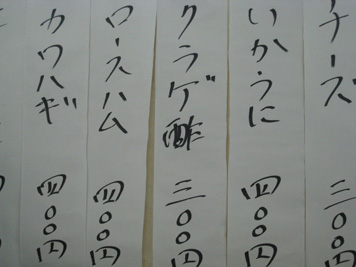 チーズ 三〇〇円
いかうに 四〇〇円
クラゲ酢 三〇〇円
ロースハム 四〇〇円
カワハギ 四〇〇円